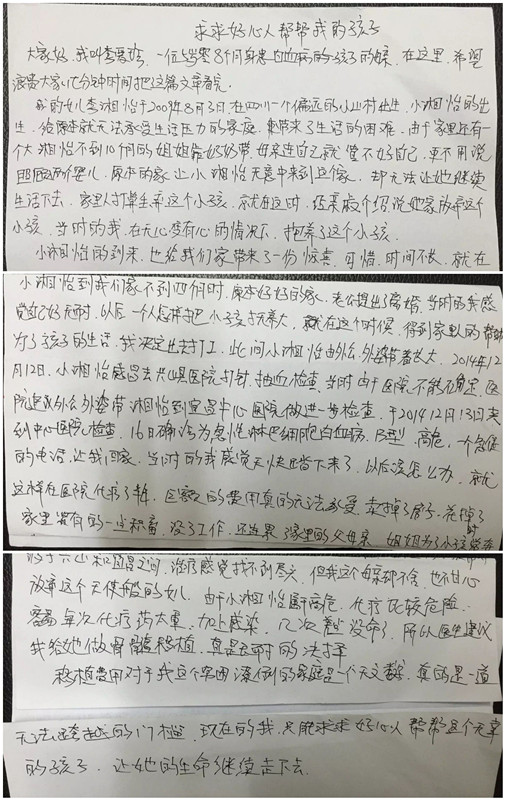 求求好心人帮帮我的孩子
大家好，我叫李，一位5岁零8个月身患白血病的孩子的妈，在这里，希望
浪费大家几分钟时间把这篇文章看完
我的女儿李湘怡于2009年8月3日在四川一个偏远的小山村出生，小湘怡的出
生，给原本就无法承受生活压力的家庭，带来了生活的困难，由于家里还有一
个大湘怡不到10个月的姐姐，母亲连自己就管不好自己，更不用说
照顾两个婴儿，原本的家让小湘怡无意中来到这家，却无法让她继续
生活下去，家里人打算丢弃这个小孩，就在这时，经亲戚介绍，说她家放弃这个
小孩，当时的我，在无心变有心的情况下，抱养了这个小孩
小湘怡的到来，也给我们家带来了一份惊喜，可惜，时间不长，就在
小湘怡到我们家不到四个月时，原本好好的家，老公提出了离婚，当时的我感
觉自己好无助，以后一个人怎样把小孩子抚养大，就在这个时候，得到家里人的帮助
为了孩子的生活，我决定出去打工，此间小湘怡由外公外婆带着长大，2014年12
月12日，小湘怡感冒去兴山县医院打针，抽血检查，当时由于医院不能确定，医
院建议外公外婆带湘怡到宜昌中心医院做进一步检查，于2014年12月13日来
到中心医院检查，16日确诊为急性淋巴细胞白血病，B型，高危，一个急促
的电话，让我回家，当时的我感觉天快塌下来了，以后该怎么办，就
这样在医院化疗了半年，医疗的费用真的无法承受，卖掉了房子，花掉了
家里仅有的一些积蓄，没了工作，还连累了家里的父母亲，姐姐为了小孩常奔
于兴山和宜昌之间，治疗感觉找不到尽头，但我这个母亲却不舍，也不甘心
放弃这个天使般的女儿，由于小湘怡属高危，化疗比较危险
每次化疗药大量，加上感染，几次差点没命了，所以医生建议
我给她做骨髓移植，真是无耐的决择
移植费用对于我这个穷困潦倒的家庭是一个天文数字，真的是一道
无法跨越的门槛，现在的我，只能求求好心人帮帮这个无辜
的孩子，让她的生命继续走下去